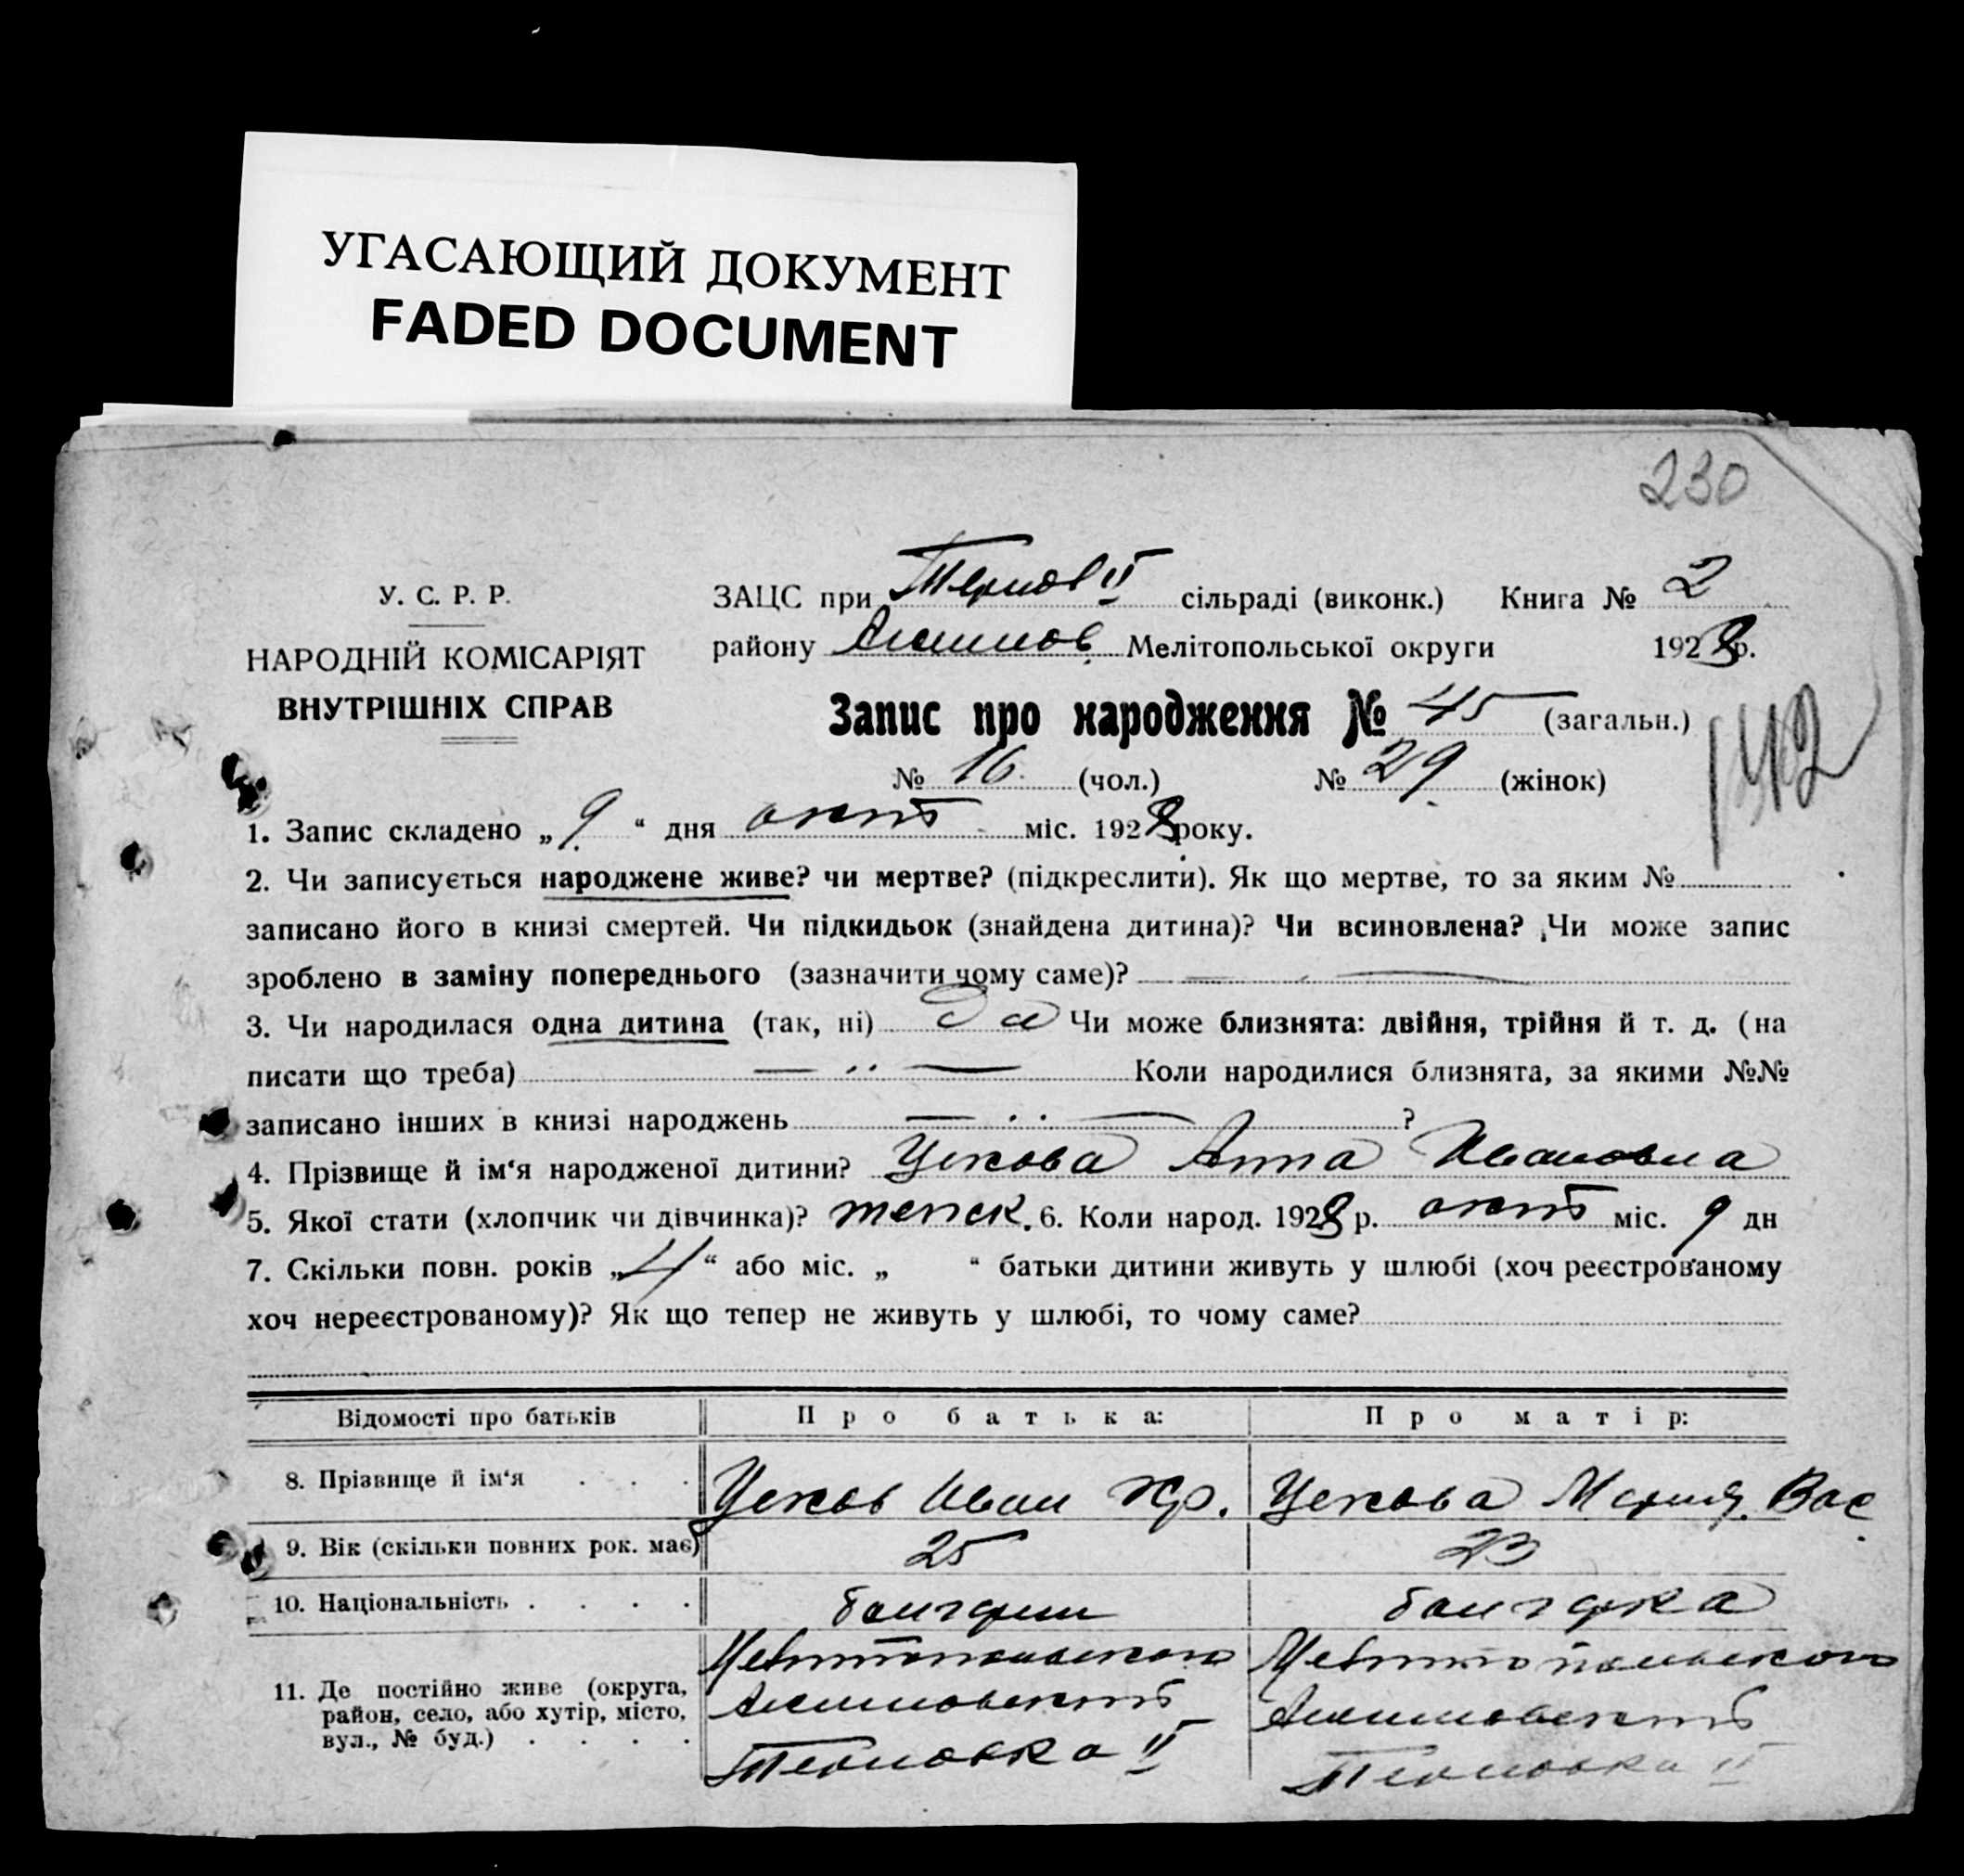 УГАСАЮЩИЙ ДОКУМЕНТ
FADED DOCUMENT
230
У. С. Р. Р.
НАРОДНІЙ КОМІСАРІЯТ
ВНУТРІШНІХ СПРАВ
ЗАЦС при Тернов II сільраді (виконк.) Книга № 2
району Акимов. Мелітопольської округи 1928 р.
Запис про народження № 45 (загальн.)
142
№ 16 (чол.) № 29 (жінок)
1. Запис складено „9“ дня окт міс. 1928 року.
2. Чи записується народжене живе? чи мертве? (підкреслити). Як що мертве, то за яким №
записано його в книзі смертей. Чи підкидьок (знайдена дитина)? Чи всиновлена? Чи може запис
зроблено в заміну попереднього (зазначити чому саме)? —
3. Чи народилася одна дитина (так, ні) да Чи може близнята: двійня, трійня й т. д. (на
писати що треба) — ·· — Коли народилися близнята, за якими №№
записано інших в книзі народжень — ·· — ?
4. Прізвище й ім‘я народженої дитини? Анна Ивановна
5. Якої стати (хлопчик чи дівчинка)? женск. 6. Коли народ. 1928 р. окт міс. 9 дн
7. Скільки повн. років „4“ або міс. „ “ батьки дитини живуть у шлюбі (хоч реєстрованому
хоч нереєстрованому)? Як що тепер не живуть у шлюбі, то чому саме?
Відомості про батьків Про батька: Про матір:
8. Прізвище й ім‘я . . . Иван Мария Вас
9. Вік (скільки повних рок. має) 25 23
10. Національність . . . . болгарин болгарка
11. Де постійно живе (округа,
район, село, або хутір, місто,
вул., № буд.) . . . .
Мелитопольского
Акимовский
Терновка II
Мелитопольского
Акимовский
Терновка II